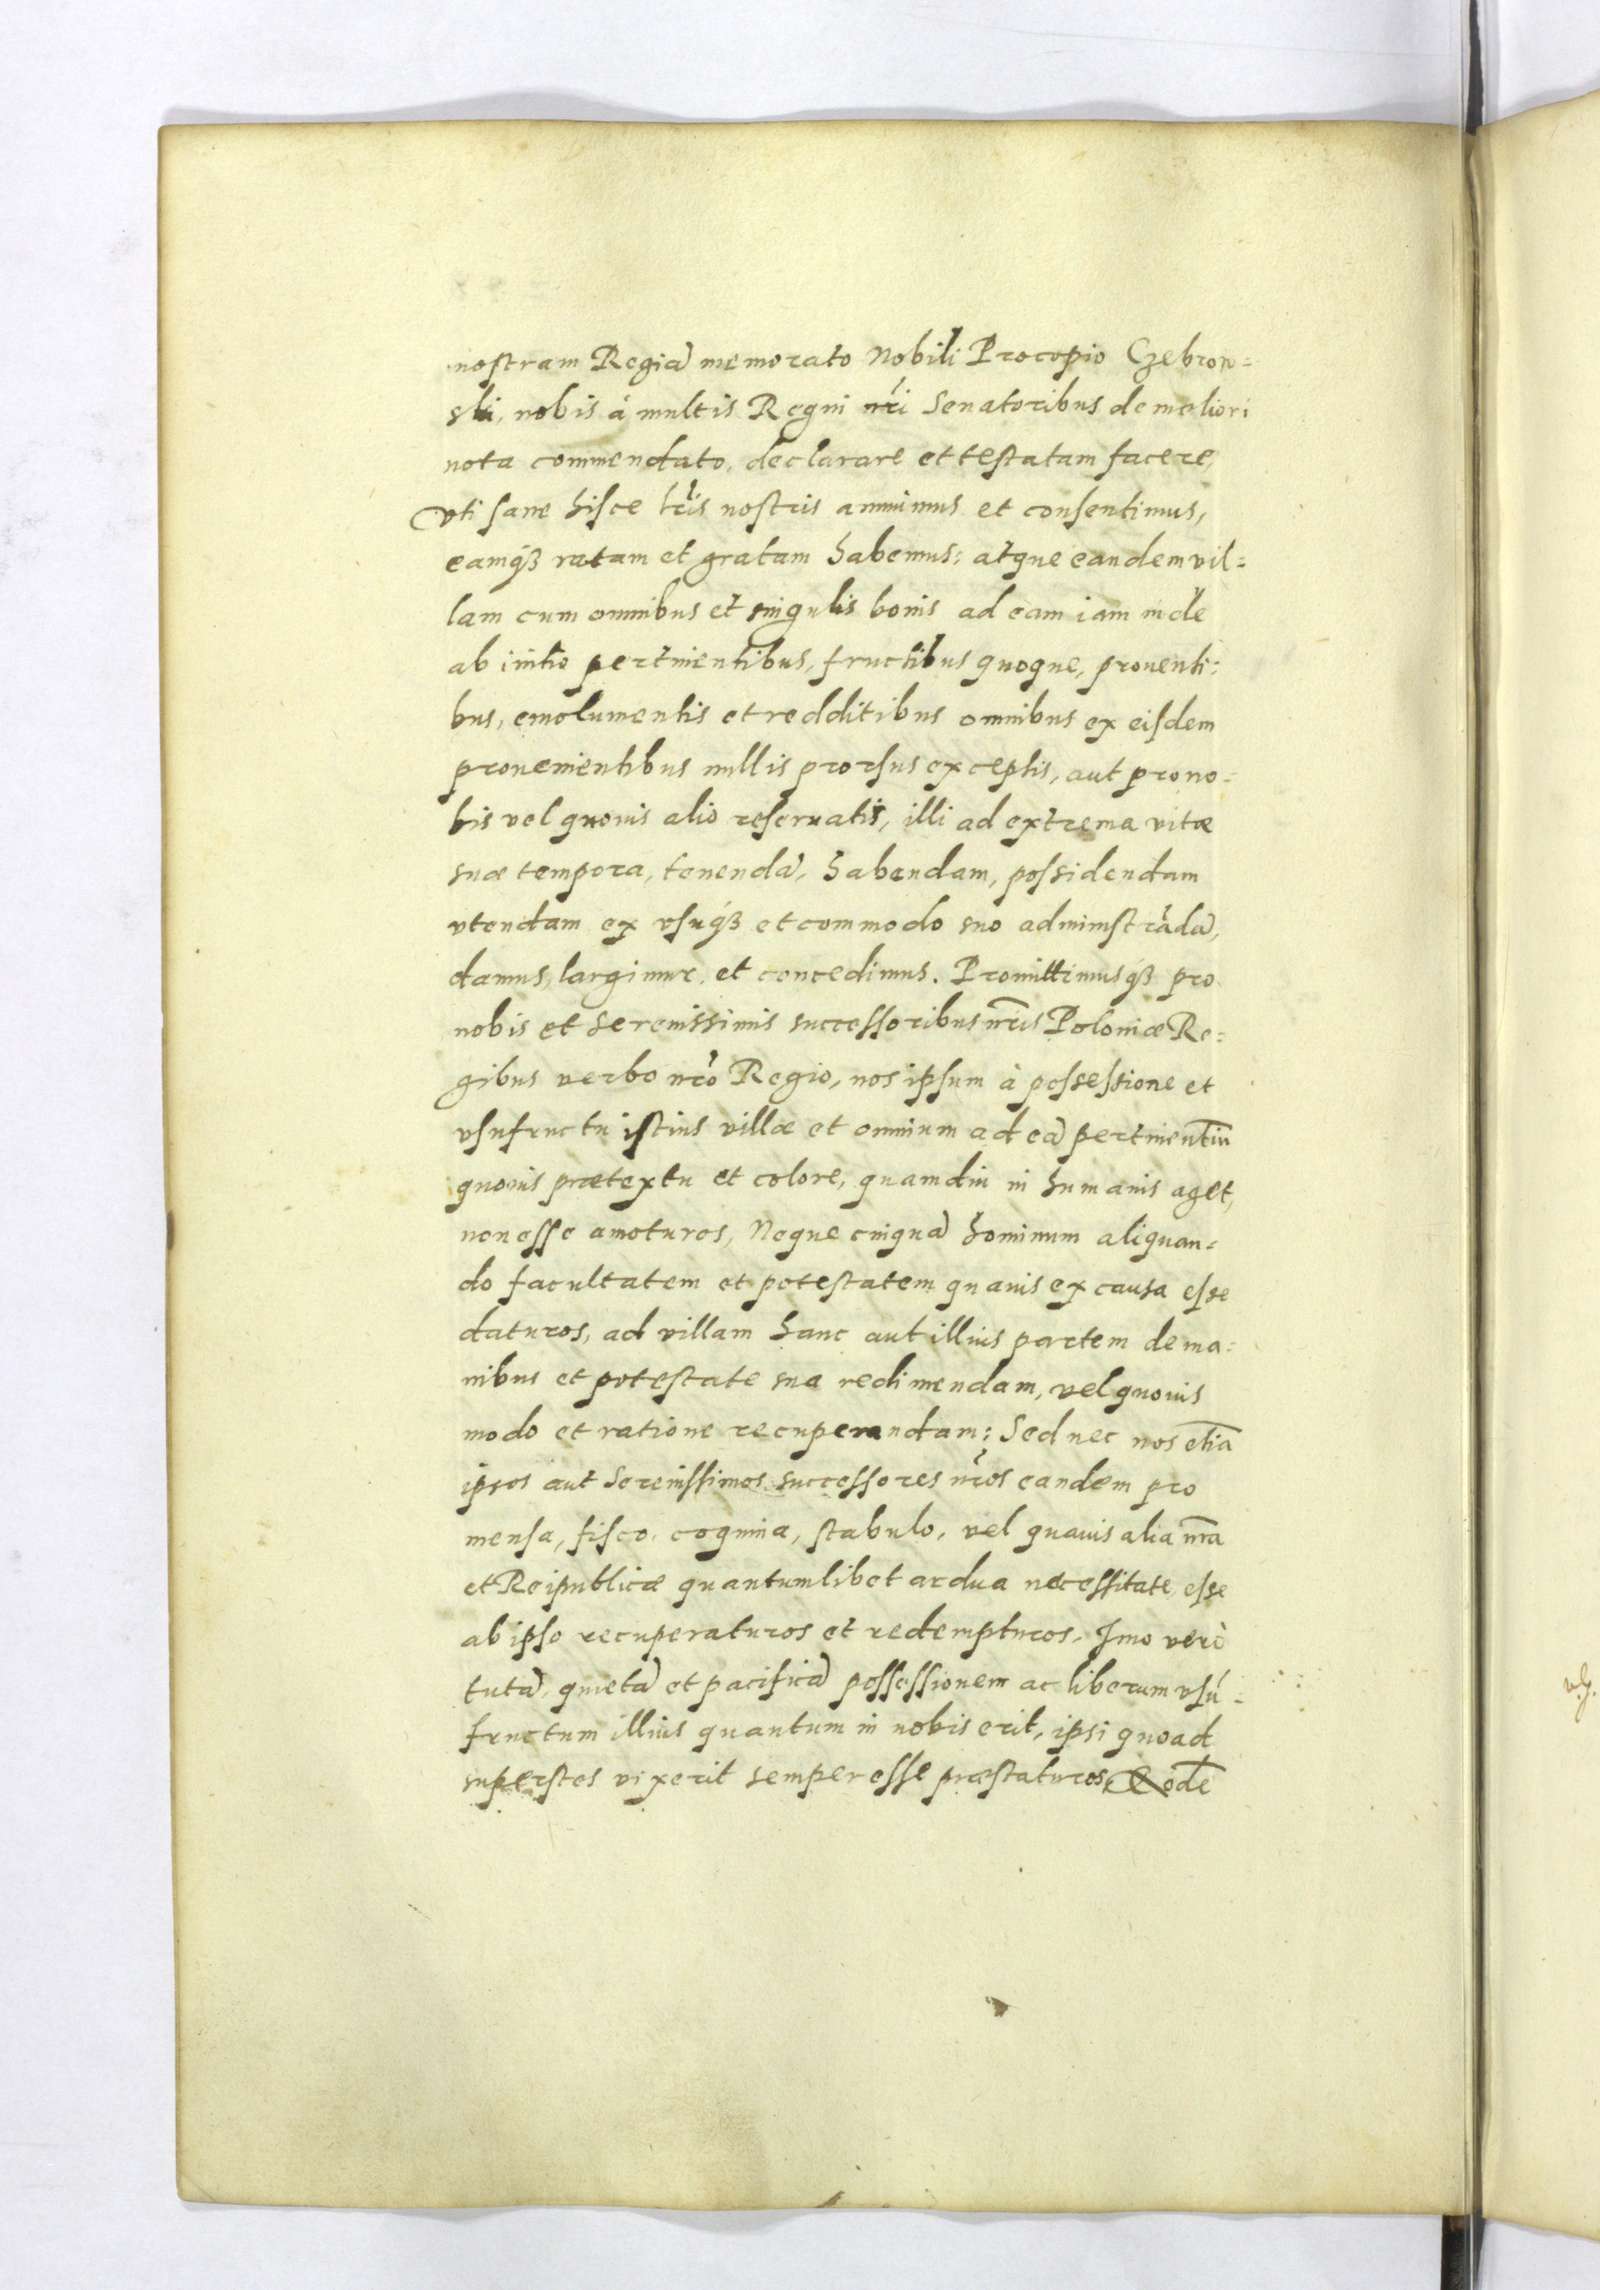 nostram Regiã memorato Nobili Procopio Czebrow=
ski, nobis à multis Regni nr̃i Senatoribus de meliori
nota commendato, declarare et testatam facere,
vti sane hisce lr̃is nostris annuimus et consentimus,
eamq́ꝫ ratam et gratam habemus: atque eandem vil=
lam cum omnibus et singulis bonis ad eam iam inde
ab initio pertinentibus, fructibus quoque, prouenti=
bus, emolumentis et redditibus omnibus ex eisdem
prouenientibus nullis prorsus exceptis, aut pro no=
bis vel quouis alio reseruatis, illi ad extrema vitæ
suæ tempora, tenendã, habendam, possidendam
vtendam ex vsuq́ꝫ et commodo suo administrãdã,
damus, largimur, et concedimus. Promittimusq́ꝫ pro
nobis et Serenissimis successoribus nr̃is Poloniæ Re=
gibus verbo nr̃o Regio, nos ipsum à possessione et
vsufructu istius villæ et omnium ad eã pertinentiũ
quouis prætextu et colore, quamdiu in humanis aget,
non esse amoturos, Neque cuiquã hominum aliquan=
do facultatem et potestatem quauis ex causa esse
daturos, ad villam hanc aut illius partem de ma=
nibus et potestate sua redimendam, vel quouis
modo et ratione recuperandam: Sed nec nos etiã
ipsos aut Serenissimos successores nr̃os eandem pro
mensa, fisco, coquina, stabulo, vel quauis alia nr̃a
et Reipublicæ quantumlibet ardua necessitate, esse
ab ipso recuperaturos et redempturos. Imo verò
tutã, quietã et pacificã possessionem ac liberum vsú=
fructum illius quantum in nobis erit, ipsi quoad
superstes vixerit semper esse præstaturos, Eodẽ